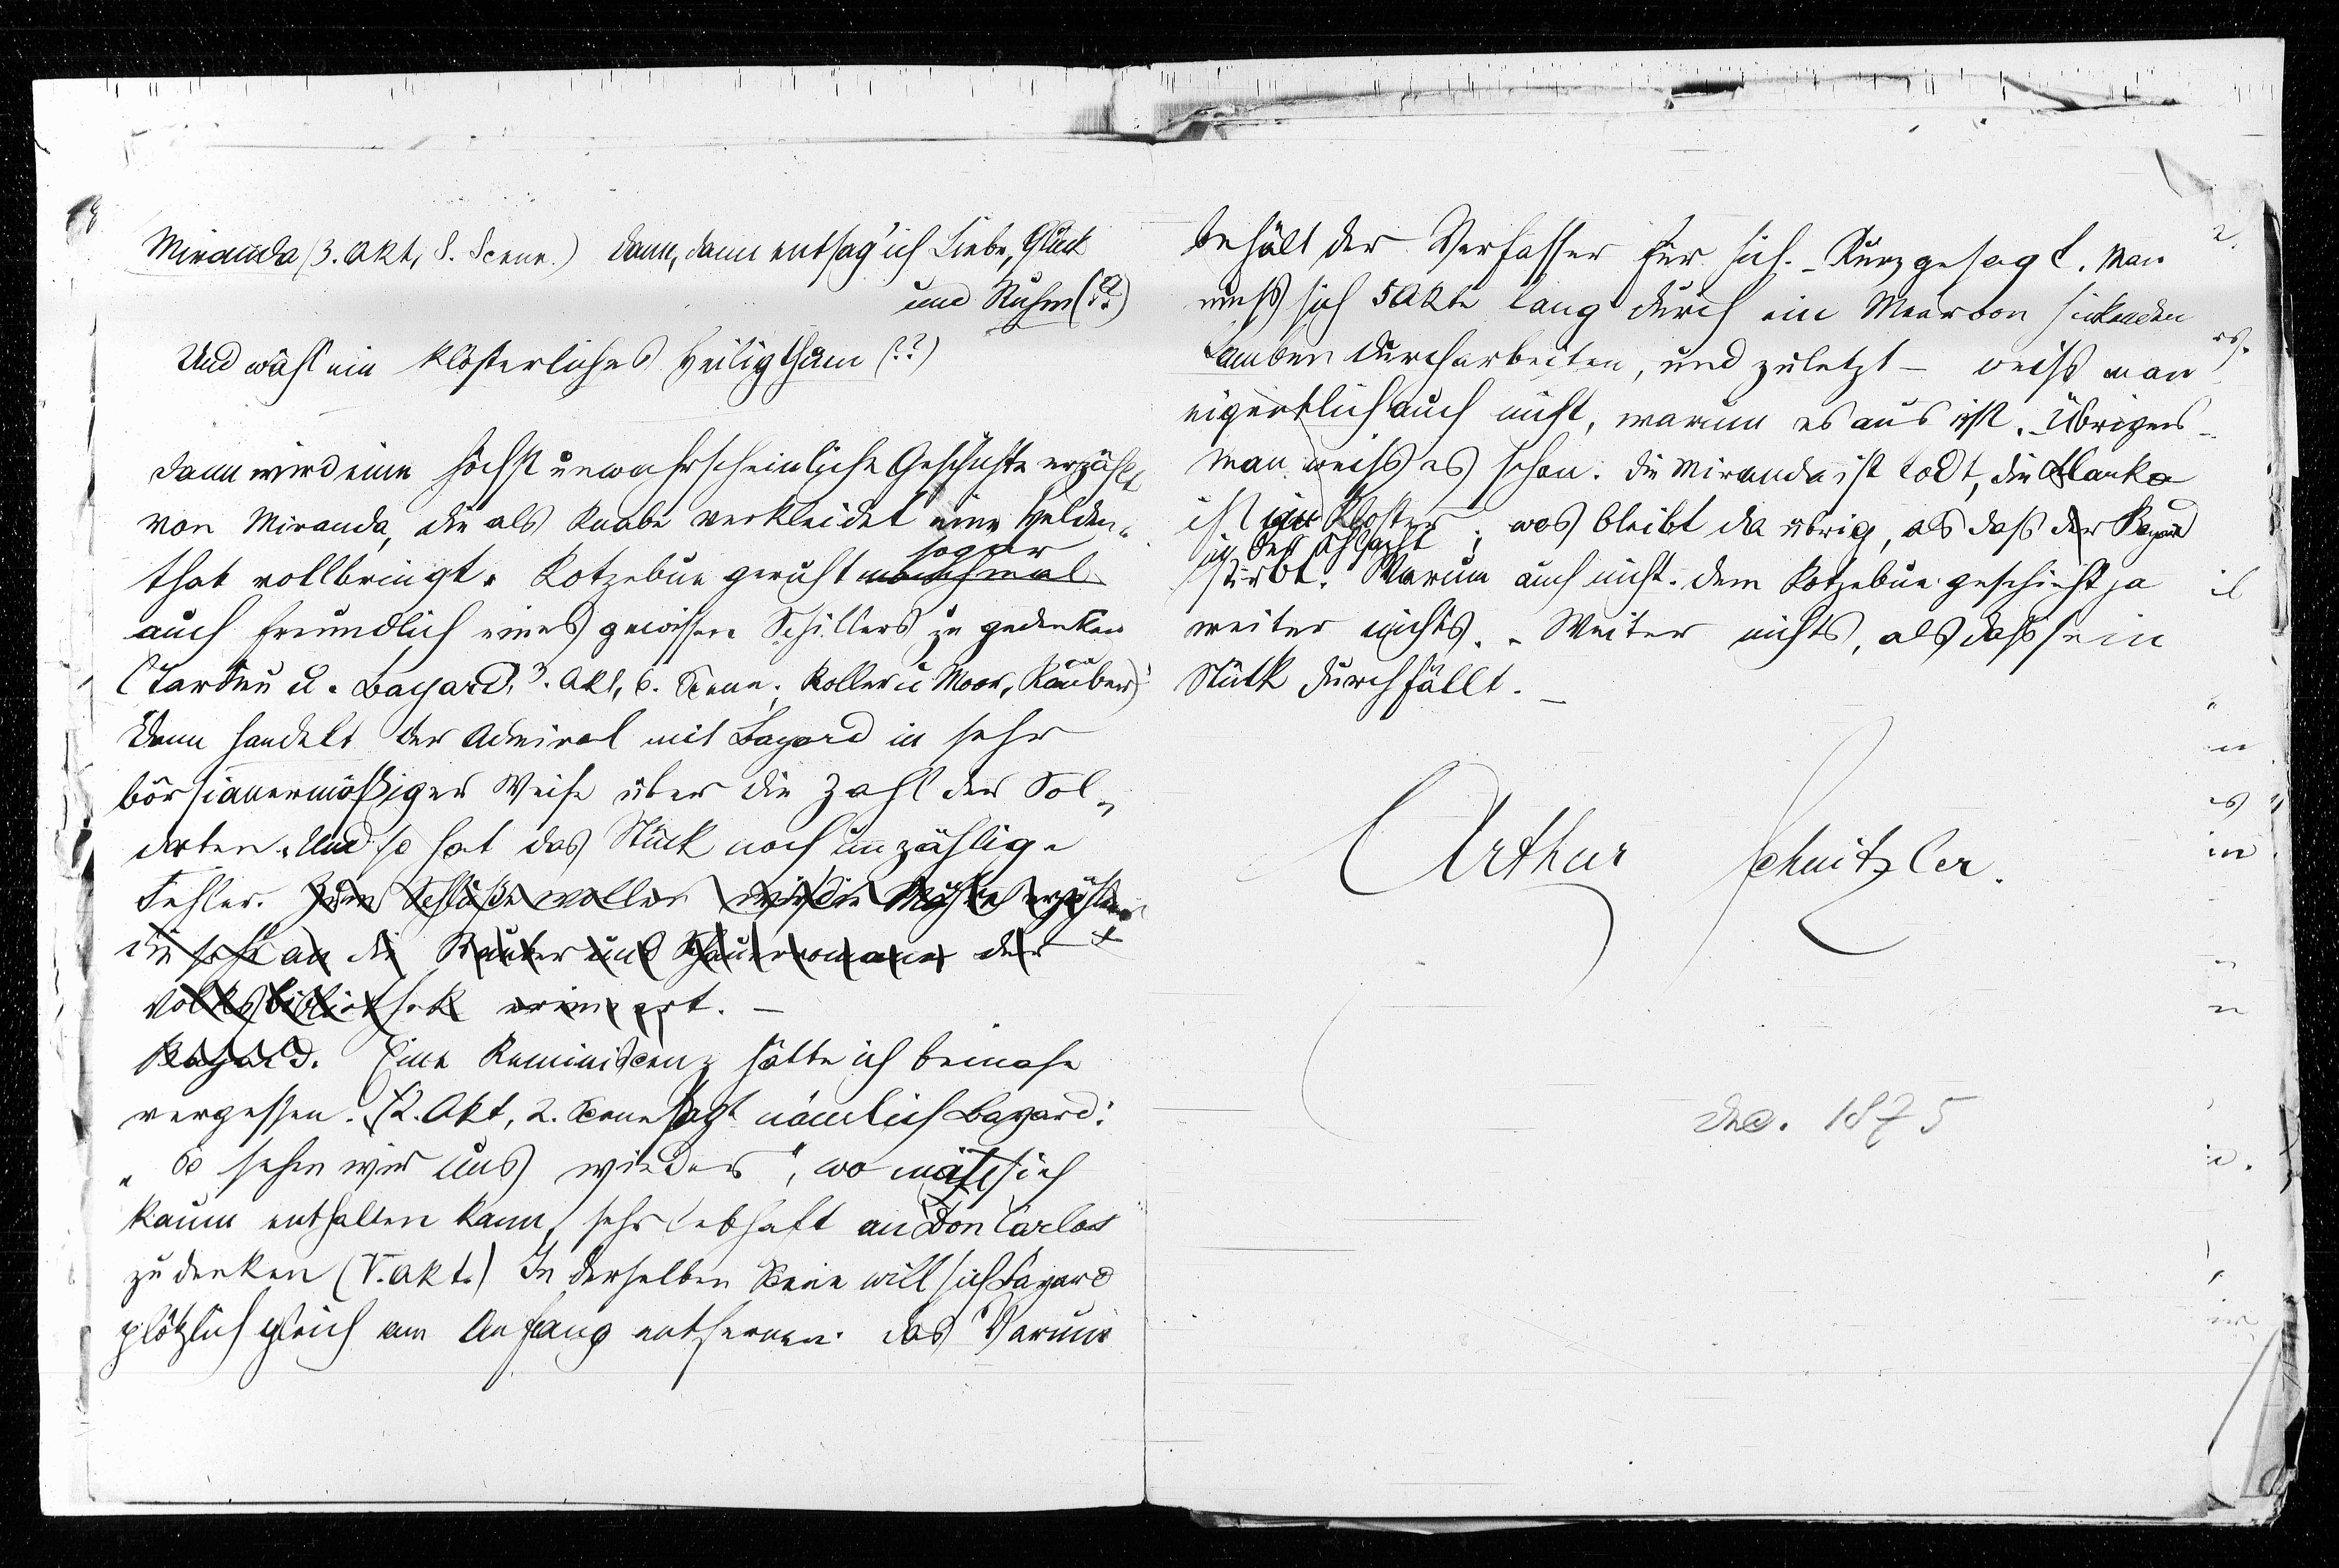 Miranda (3. Akt, 8. Scene.) Dann, dann entsag' ich Liebe, Glück
und Ruhm (??)
Und wähl ein klösterliches Heiligthum (??)
Dann wird eine höchst unwahrscheinliche Geschichte erzählt
von Miranda, die als Knabe verkleidet eine Helden-
sogar
that vollbringt. Kotzebue geruht manchmal
auch freundlich eines gewissen Schillers zu gedenken
(Tardieu u. Bayard, 3. Akt, 6. Scene; Roller u Moor, Räuber)
Dann handelt der Admiral mit Bayard in sehr
börsianermäßiger Weise über die Zahl der Sol-
daten. Und so hat das Stück noch unzählige
Fehler. Zum Schluße wollen wir die erzählen
die sehr an die Räuber und Schauerromane der +
Volksbibliothek erinnert. –
Bayard. Eine Reminiscenz hätte ich beinahe
vergessen. (2. Akt, 2. Scene sagt nämlich Bayard:
„So sehen wir uns wieder", wo man sich
kaum enthalten kann, sehr lebhaft an Don Carlos
zu denken (V. Akt.) In derselben Scene will sich Bayard
plötzlich gleich am Anfang entfernen. Das Warum
behält der Verfasser für sich. – Kurz gesagt. Man
muß sich 5 Akte lang durch ein Meer von
Jamben durcharbeiten, und zuletzt – weiß man
eigentlich auch nicht, warum es aus ist. Übrigens –
man weiß es schon. Die Miranda ist todt, die Blanka
ist im Kloster; was bleibt da übrig, als daß der Bayard
in der Schlacht
stirbt. Warum auch nicht. Dem Kotzebue geschieht ja
weiter nichts. – Weiter nichts, als daß sein
Stück durchfällt. –
Arthur Schnitzler.
Dec. 1875